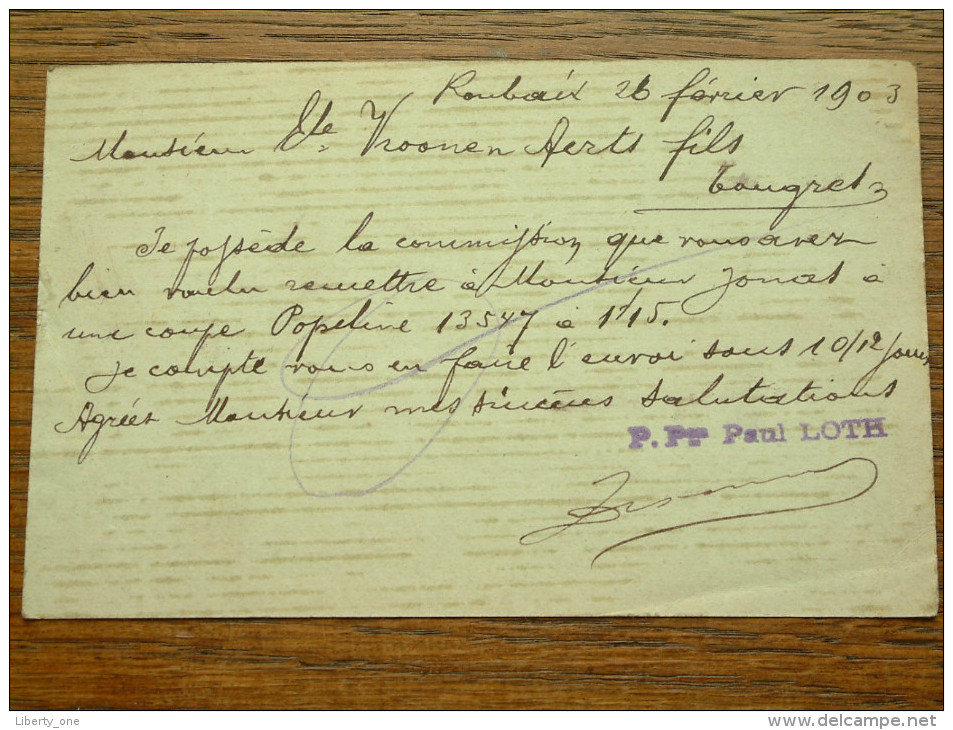 Roubaix 26 février 1903
Monsieur Vve Vroonen Aerts fils
Tongres
Je possède la commission que vous avez
bien voulu remettre à Monsieur à
une coupe Popeline 13547 à 1f15.
Je compte vous en faire l'envoi sous 10/12 jours
Agréez Monsieur mes sincères salutations
P. Pon Paul LOTH
Liberty_one
www.delcampe.net